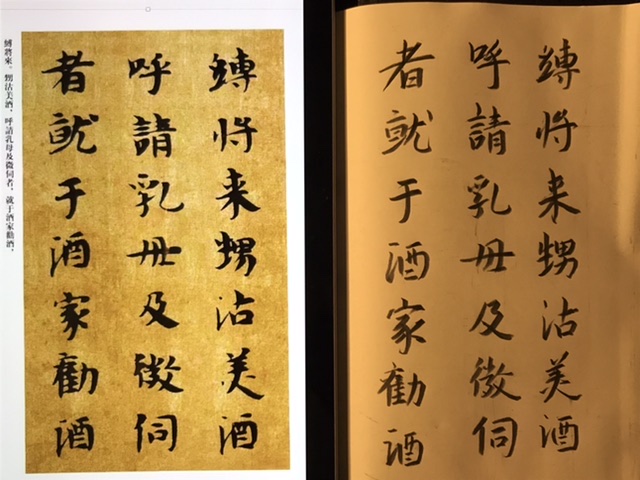 縛将来甥沽美酒
呼請乳母及微伺
者就于酒家勸酒
縛將來。甥沽美酒，呼請乳母及微伺者，就于酒家勸酒，
縛将来甥沽美酒
呼請乳母及微伺
者就于酒家勸酒